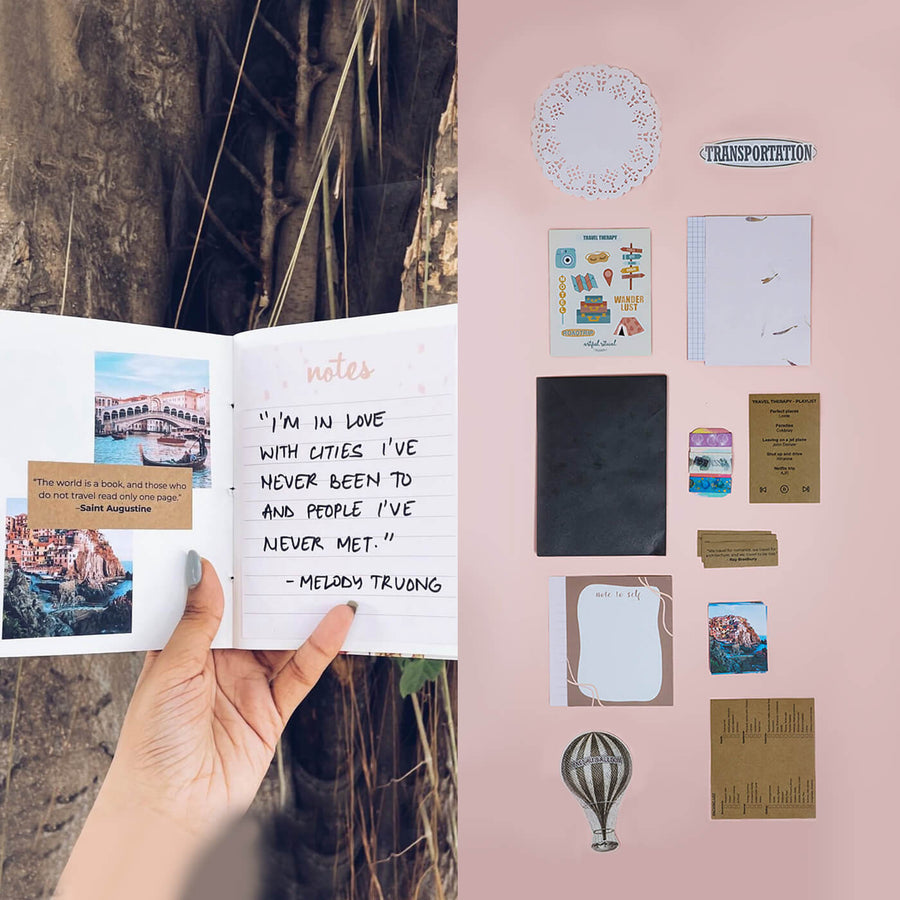 "The world is a book, and those who
do not travel read only one page."
–Saint Augustine
notes
"I'M IN LOVE
WITH CITIES I'VE
NEVER BEEN TO
AND PEOPLE I'VE
NEVER MET."
- MELODY TRUONG
TRANSPORTATION
TRAVEL THERAPY
MOTEL
WANDER
LUST
ROAD TRIP
artful ritual
TRAVEL THERAPY - PLAYLIST
Perfect places
Lorde
Paradise
Coldplay
Leaving on a jet plane
John Denver
Shut up and drive
Rihanna
Netflix trip
AJR
"We travel for romance, we travel for
architecture, and we travel to be lost."
-Ray Bradbury
note to self